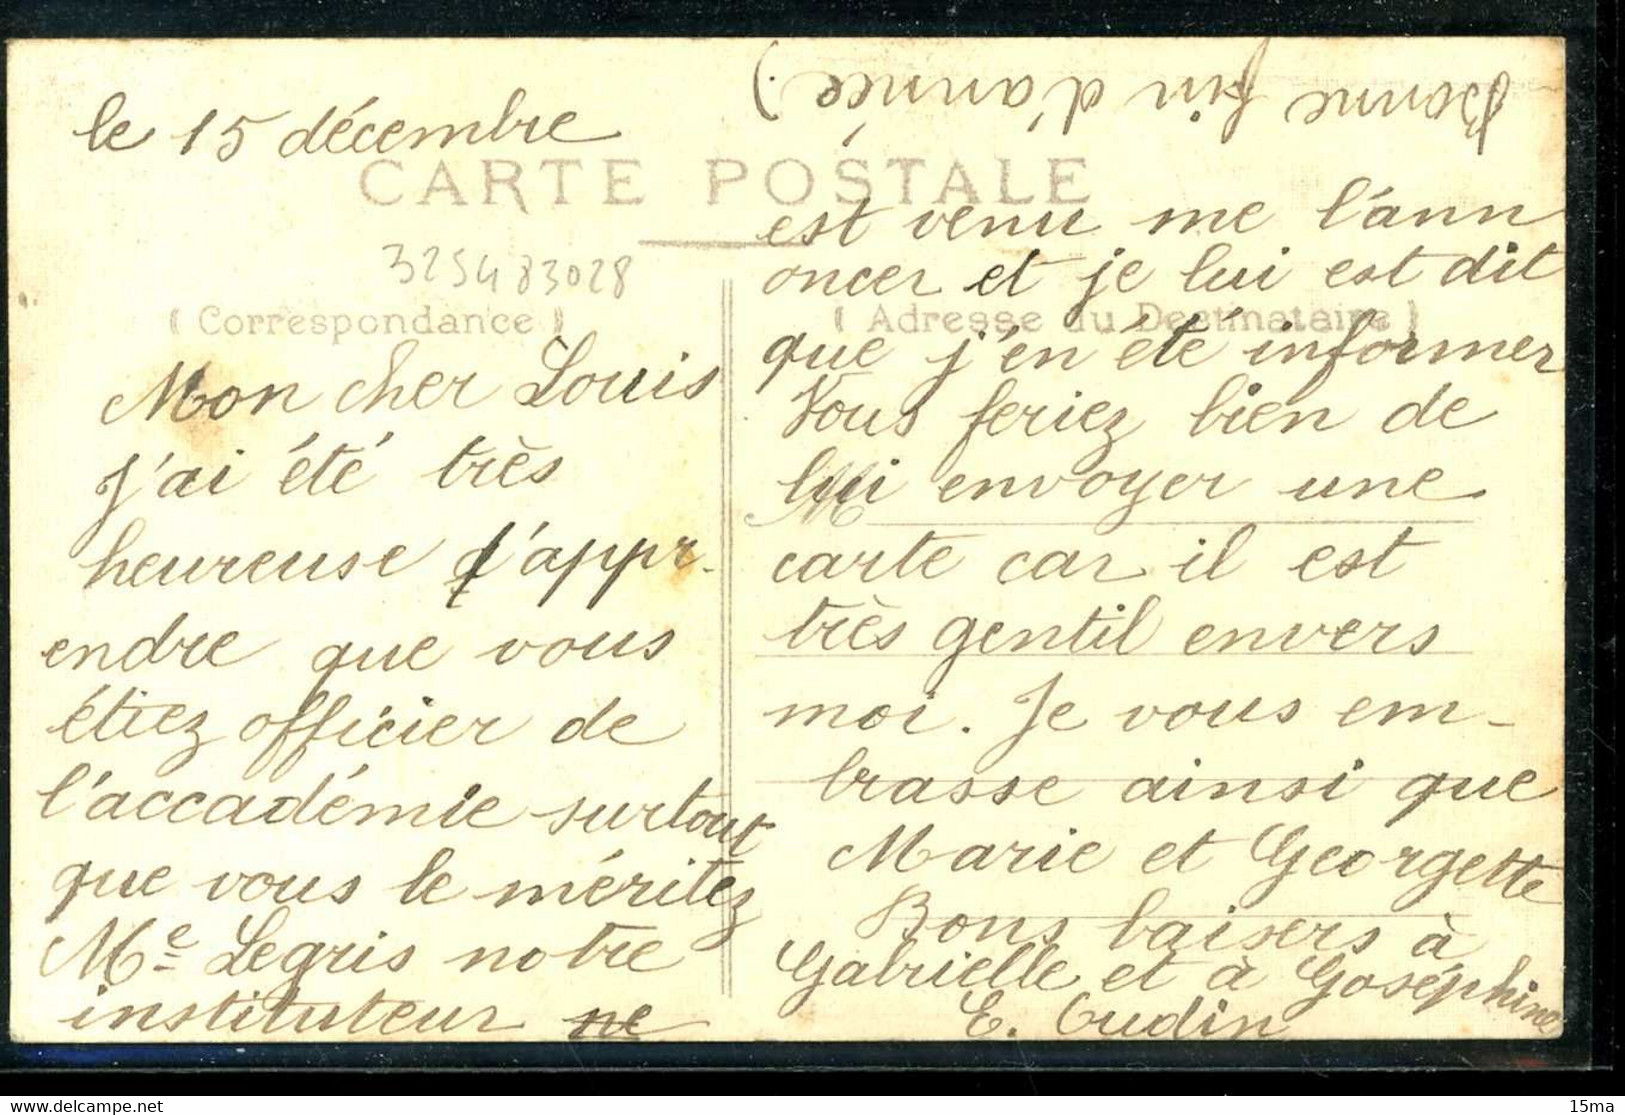 le 15 décembre
CARTE POSTALE
325483028
(Correspondance)
Mon cher Louis
j'ai été très
heureuse d'appr-
endre que vous
étiez officier de
l'accadémie surtout
que vous le méritez
Me Legris notre
instituteur ne
(Adresse du Destinataire)
est venu me l'ann
oncer et je lui est dit
que j'en été informer
Vous feriez bien de
lui envoyer une
carte car il est
très gentil envers
moi. Je vous em-
brasse ainsi que
Marie et Georgette
Bons baisers à
Gabrielle et à Goséphine
E. Oudin
Bonne fin d'année)
15ma